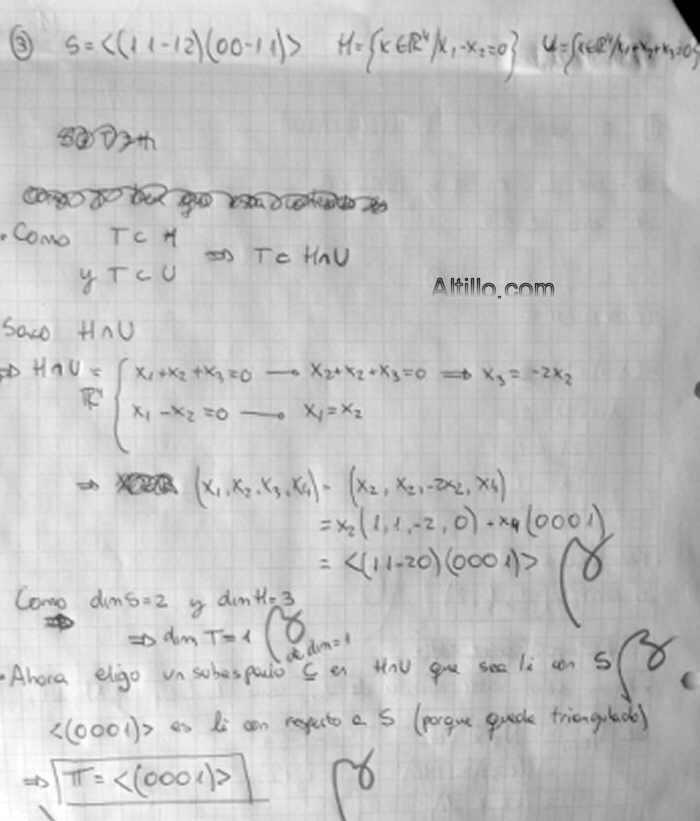 ③ S = <(1 1 -1 2)(0 0 -1 1)> H = {x ∈ ℝ⁴/x₁-x₂=0} U = {x ∈ ℝ⁴/x₁+x₂+x₃=0}
• Como T ⊂ H
y T ⊂ U ⇒ T ⊂ H∩U
Altillo.com
Saco H∩U
⇒ H∩U = { x₁+x₂+x₃=0 → x₂+x₂+x₃=0 ⇒ x₃ = -2x₂
x₁-x₂=0 → x₁=x₂
⇒ (x₁,x₂,x₃,x₄) = (x₂, x₂, -2x₂, x₄)
= x₂(1,1,-2,0) + x₄(0001)
= <(11-20)(0001)>
Como dim S=2 y dim H=3
⇒ dim T=1
de dim=1
• Ahora eligo un subespacio ⊆ en H∩U que sea li con S
<(0001)> es li con respecto a S (porque queda triangulado)
⇒ T = <(0001)>